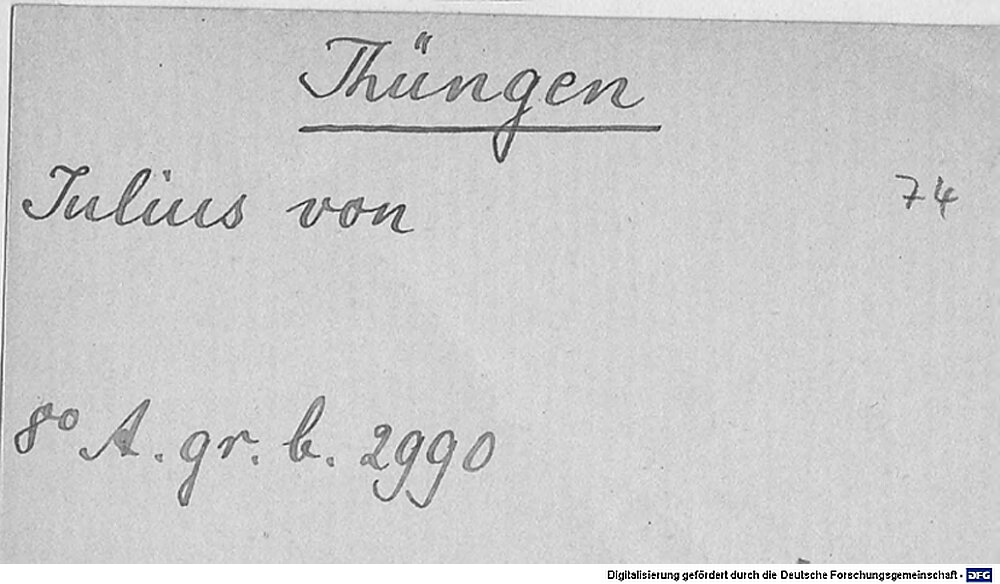 Thüngen
Julius von 74
8° A. gr. b. 2990
Digitalisierung gefördert durch die Deutsche Forschungsgemeinschaft - DFG